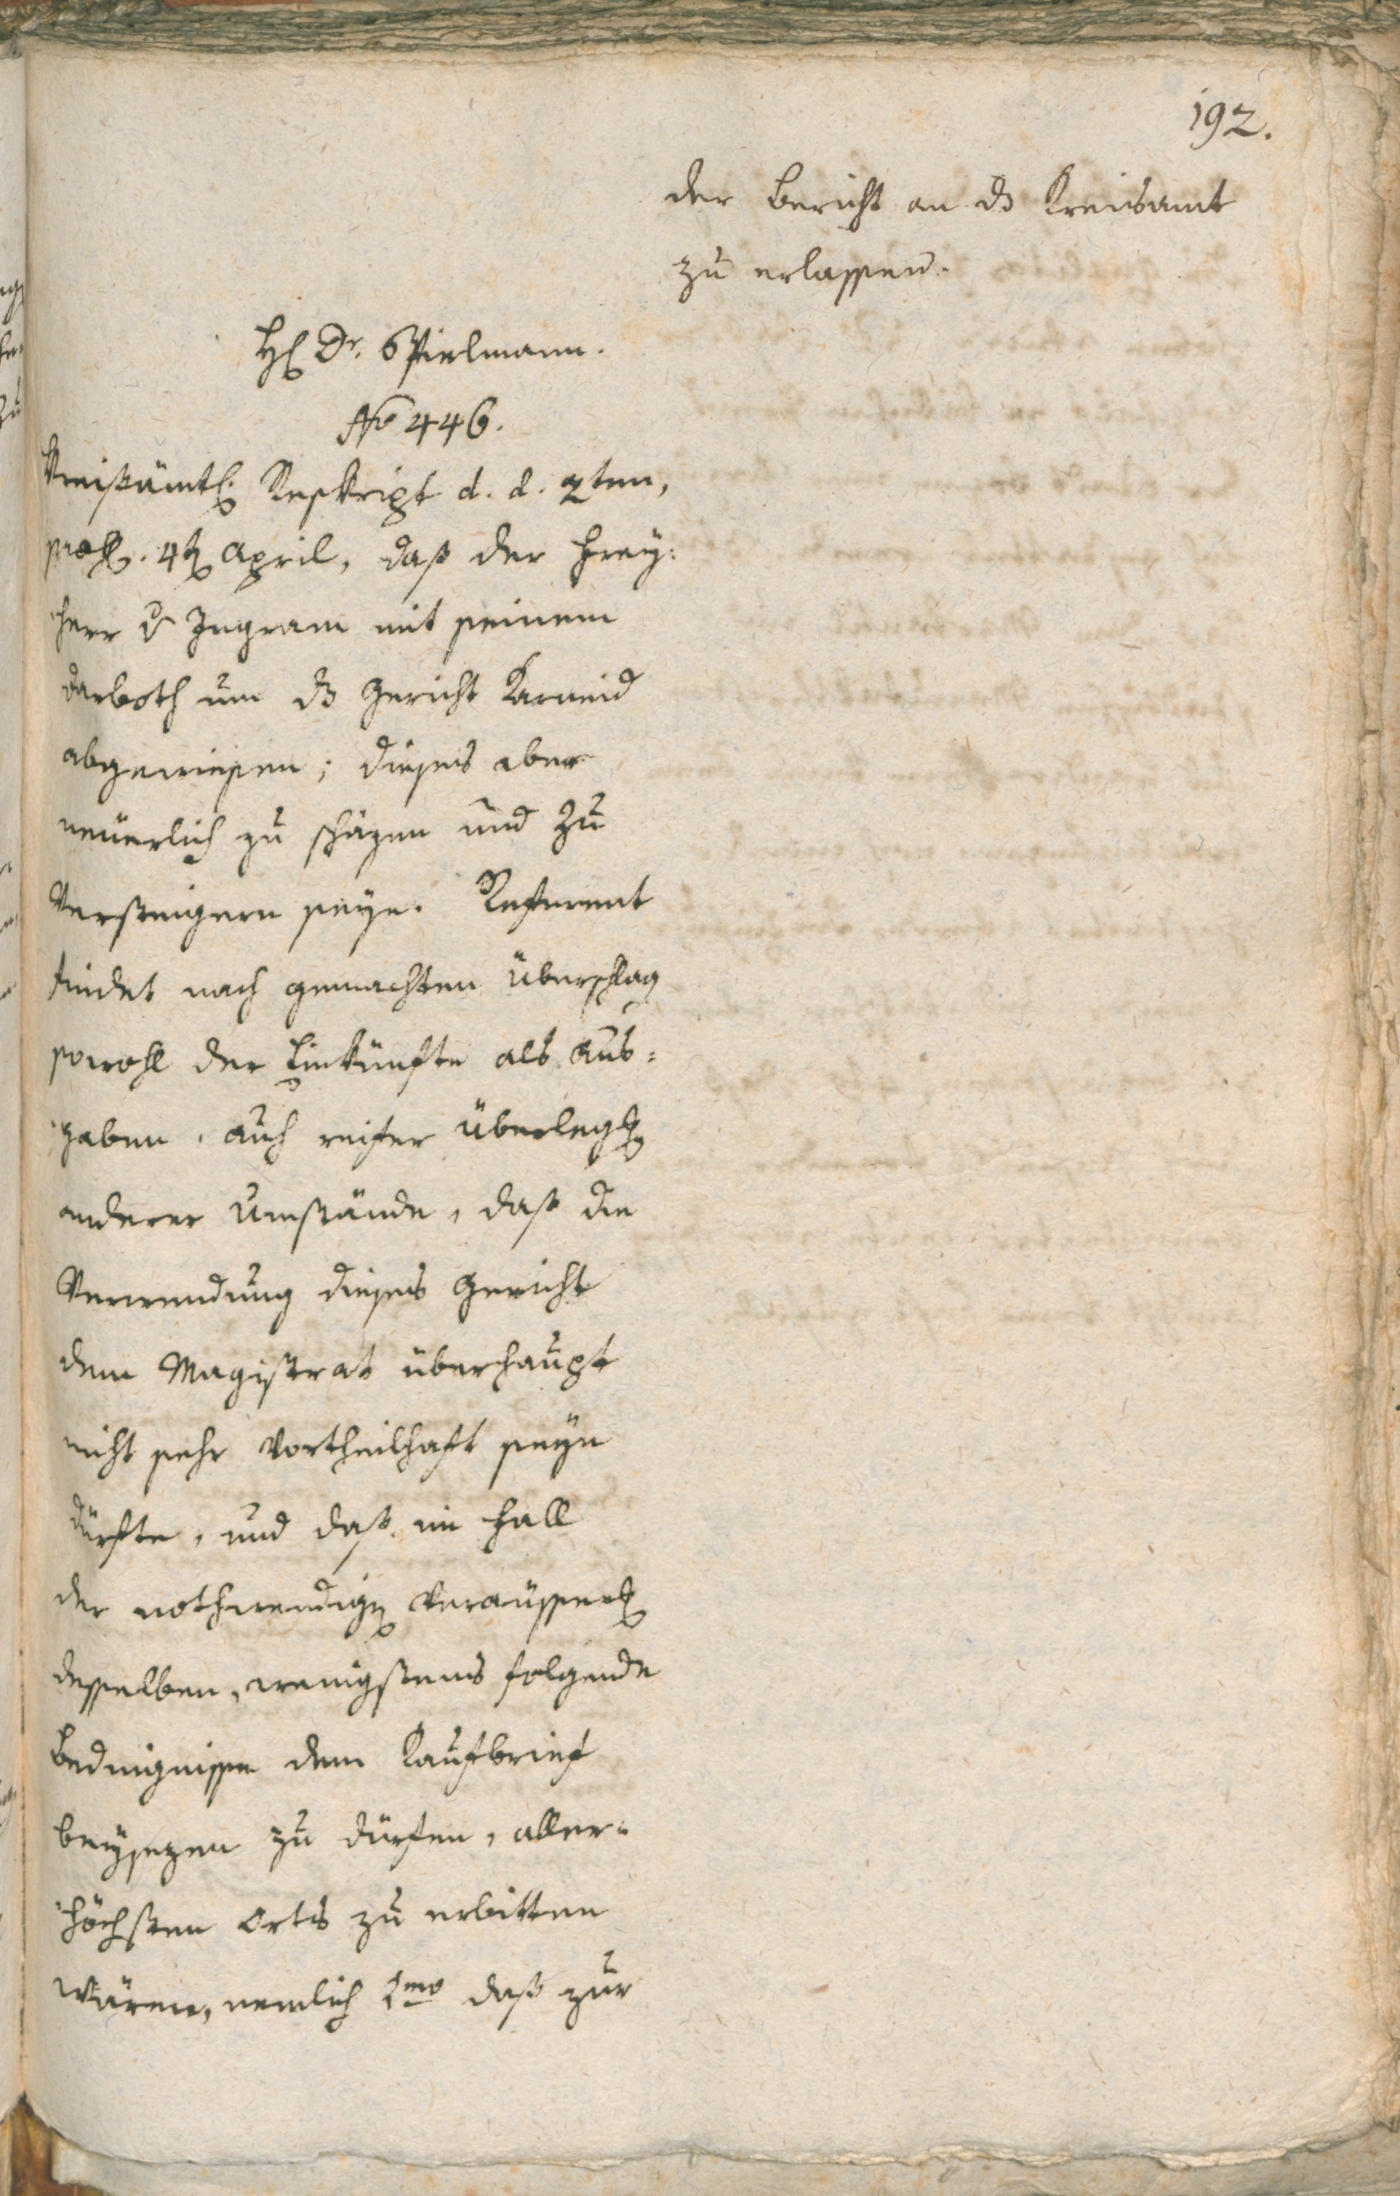 192.
der Bericht an dz Kreisamt
zu erlassen.
H. Dr. Spielmann.
No 446.
Kreisämtl. Reskript d. d. 2ten,
pras. 4t April, daß der Frey:
herr v Ingram mit seinem
Darboth um dz Gericht Karneid
abgewiesen; dieses aber
neuerlich zu schäzen und zu
Versteigern seye. Referent
findet nach gemachten Überschlag
sowohl der Einkünfte als Aus:
gaben, auch reifer Überlegg
anderer Umstände, daß die
Verwendung dieses Gericht
dem Magistrat überhaupt
nicht sehr Vortheilhaft seyn
dürfte, und daß im Fall
der nothwendign Veräusserg
desselben, wenigstens folgende
Bedingnisse dem Kaufbrief
beysezen zu dürfen, aller-
höchsten Orts zu erbitten
wären, nemlich 1mo daß zur